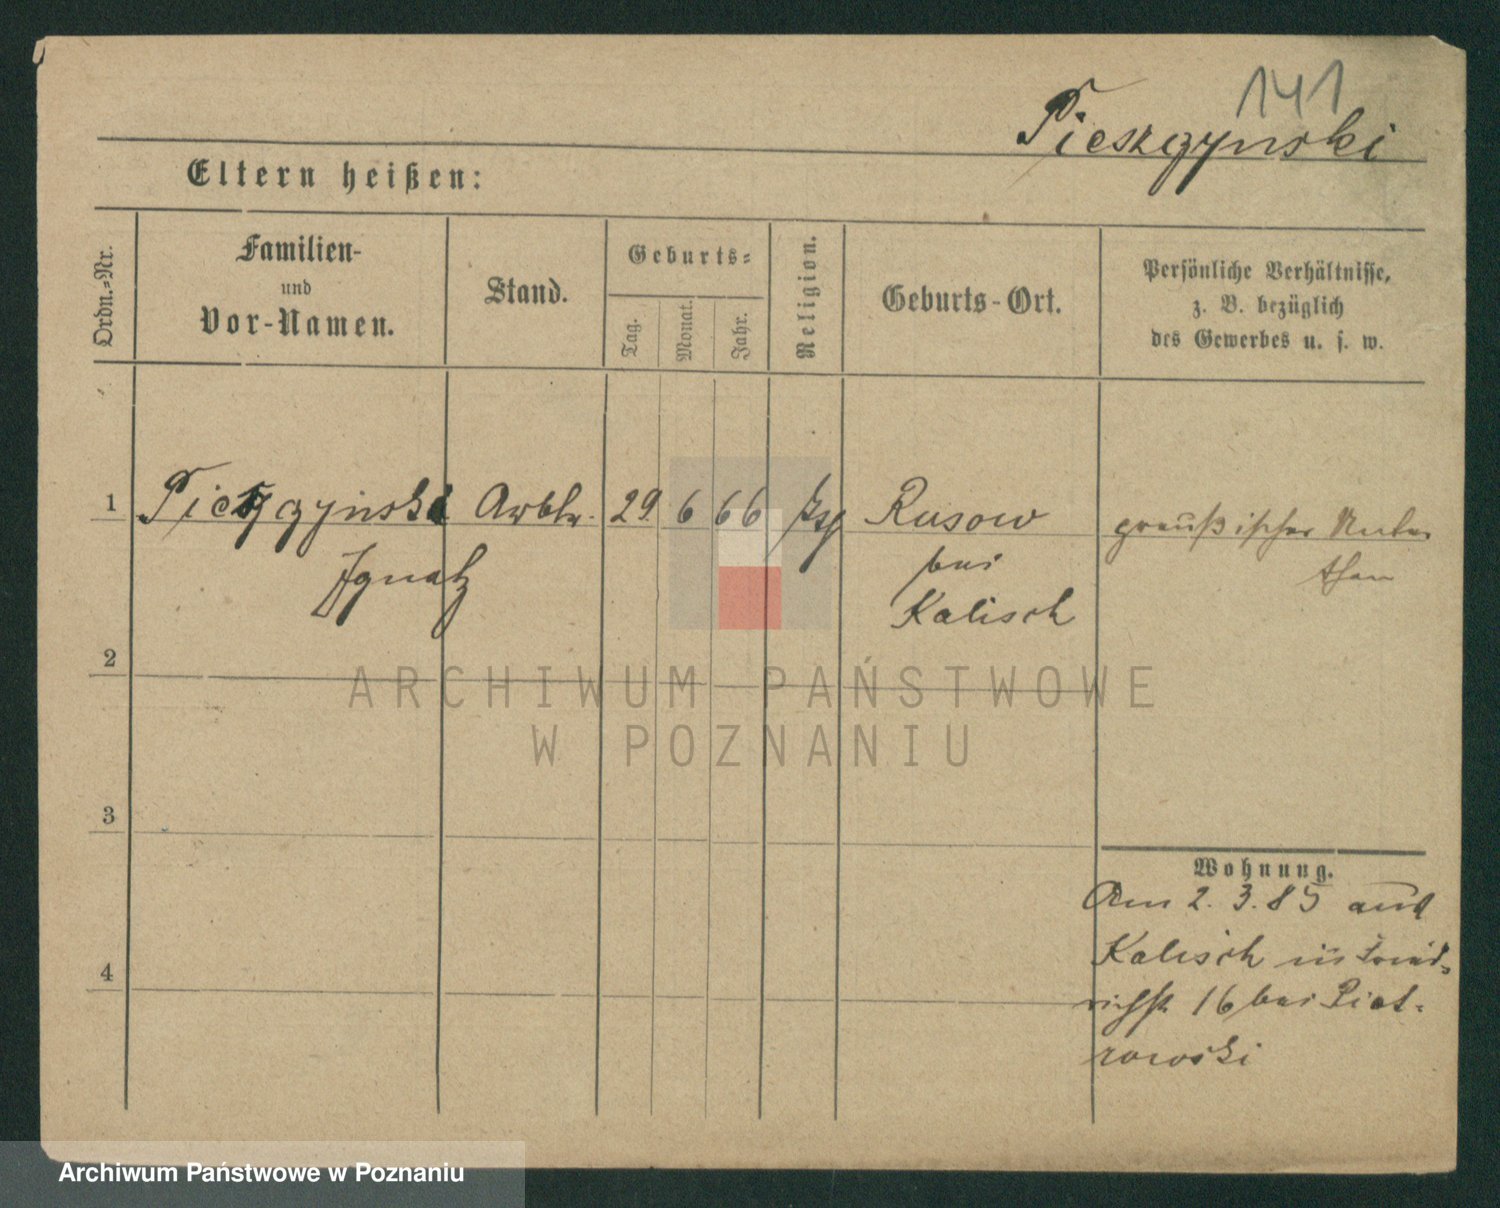 141
Pieszczynski
Eltern heißen:
Ordn.=Nr.
Familien-
und
Vor-Namen.
Stand.
Geburts=
Tag.
Monat.
Jahr.
Religion.
Geburts-Ort.
Persönliche Verhältnisse,
z. B. bezüglich
des Gewerbes u. s. w.
1 Arbtr. 29. 6 66 Rusow preußischer Unter
Ignatz bei than
Kalisch
2
ARCHIWUM PAŃSTWOWE
W POZNANIU
3
Wohnung.
Am 2. 3. 85 aus
Kalisch
4
16 bei Piet-
rowski
Archiwum Państwowe w Poznaniu